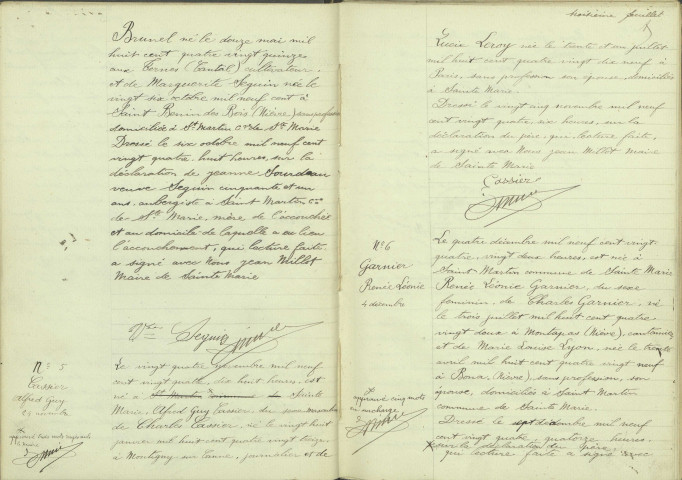 Brunel né le douze mai mil
huit cent quatre vingt quinze
aux Ternes (Cantal) cultivateur
et de Marguerite Seguin née le
vingt six octobre mil neuf cent à
Saint Benin des Bois (Nièvre) sans profession
domiciliée à St Martin Cne de Ste Marie
Dressé le six octobre mil neuf cent
vingt quatre. huit heures, sur la
déclaration de Jeanne Sourdeau
veuve Seguin cinquante et un
ans, aubergiste à Saint Martin Cne
de Ste Marie, mère de l'accouchée
et au domicile de laquelle a eu lieu
l'accouchement, qui lecture faite
a signé avec Nous Jean Millet
Maire de Sainte Marie
Vve Seguin
N° 5
Cassier
Alfred Guy
approuvé trois mots rayés nuls
Le vingt quatre novembre mil neuf
cent vingt quatre, dix huit heures, est
né à St Martin Commune de Sainte
Marie, Alfred Guy Cassier, du sexe masculin
de Charles Cassier, né le vingt huit
janvier mil huit cent quatre vingt treize
à Montigny sur Canne, journalier et de
troisième feuillet
Lucie Leroy née le trente et un juillet
mil huit cent quatre vingt dix neuf à
Paris, sans profession son épouse domiciliés
à Sainte Marie.
Dressé le vingt cinq novembre mil neuf
cent vingt quatre six heures, sur la
déclaration du père, qui lecture faite,
a signé avec Nous Jean Millet Maire
de Sainte Marie
Cassier
N° 6
Garnier
Renée Léonie
4 décembre
approuvé cinq mots
en surcharge
Le quatre décembre mil neuf cent vingt
quatre, vingt deux heures, est née à
Saint Martin commune de Sainte Marie
Renée Léonie Garnier, du sexe
féminin, de Charles Garnier, né
le trois juillet mil huit cent quatre
vingt deux à Montapas (Nièvre), cantonnier
et de Marie Louise Lyon, née le
avril mil huit cent quatre vingt neuf
à Bona (Nièvre), sans profession, son
épouse, domiciliés à Saint Martin
commune de Sainte Marie.
Dressé le sept décembre mil neuf
cent vingt quatre, quatorze heures.
sur la déclaration du père,
qui lecture faite a signé avec